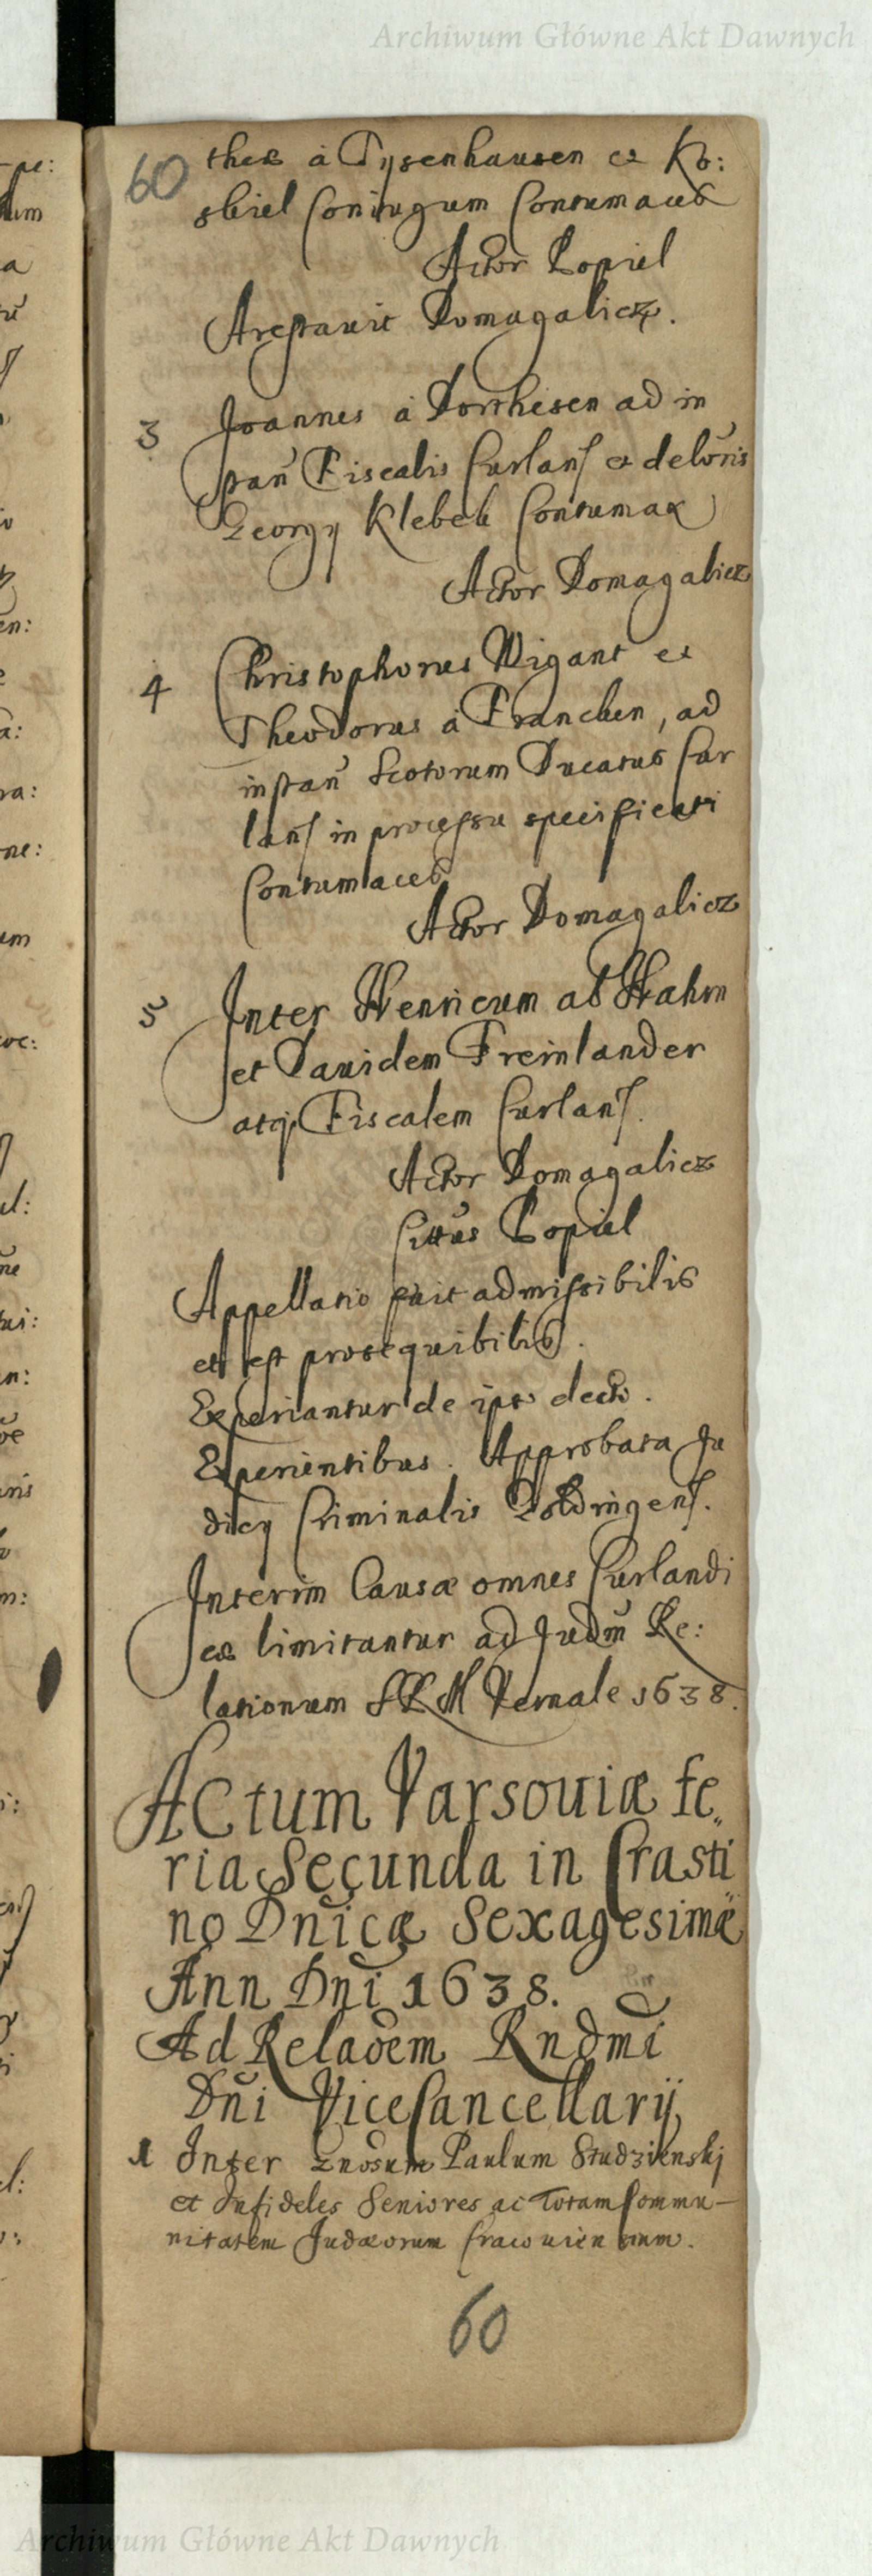 Archiwum Główne Akt Dawnych
60 thes à Tysenhausen et Ko:
skiel Coniugum Contumaces
Actor Popiel
Arestauit Domagalicz.
3 Joannes à Dorthesen ad in
stan̄ Fiscalis Curlanſ et delōris
Georgij Klebek Contumax
Actor Domagalicz
4 Christophorus Wigant et
Theodorus à Francken, ad
instan̄ Scotorum Ducatus Cur
lanſ in processu specificati
Contumaces
Actor Domagalicz
5 Inter Henricum ab Hahm
et Dauidem Freinlander
atq; Fiscalem Curlanſ.
Actor Domagalicz
Cittūs Popiel
Appellatio fuit admissibilis
et est prosequibilis.
Experiantur de ipso decto.
Experientibus. Approbata Ju
dicij Criminalis Goldingenſ.
Interim Causæ omnes Curlandi
cæ limitantur ad Judm̄ Re:
lationum SRM Vernale 1638.
Actum Varsouiæ fe„
ria Secunda in Crasti
no Dnīcæ Sexagesimæ
Ann Dnī 1638.
Ad Relaōem Rndmī
Dn̄i ViceCancellarij
1 Inter Gnōsum Paulum Studzienskj
et Infideles Seniores ac Totam Commu-
nitatem Judæorum Cracouiensium.
60
Archiwum Główne Akt Dawnych